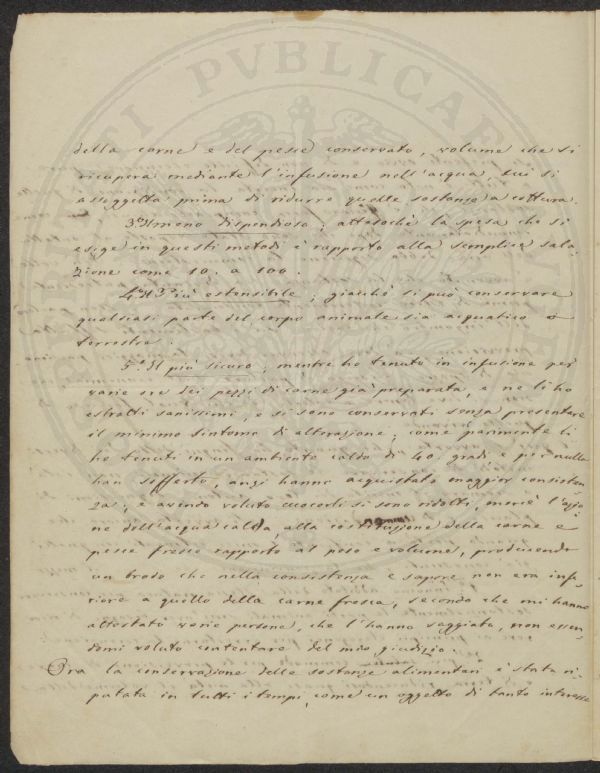 della carne e del pesce conservato, volume che si
ricupera mediante l'infusione nell'acqua, cui si
assoggetta prima di ridurre quelle sostanze a cottura.
3.° Il meno dispendioso; attesochè la spesa che si
esige in questi metodi è rapporto alla semplice sala-
zione come 10. a 100.
4.° Il più estensibile; giacchè si può conservare
qualsiasi parte del corpo animale sia acquatico o
terrestre.
5.° Il più sicuro; mentre ho tenuto in infusione per
varie ore dei pezzi di carne già preparata, e ne li ho
estratti sanissimi, e si sono conservati senza presentare
il minimo sintomo di alterazione; come parimente li
ho tenuti in un ambiente caldo di 40. gradi e per nulla
han sofferto, anzi hanno acquistato maggior consisten-
za; e avendo voluto cuocerli si sono ridotti, mercè l'azio-
ne dell'acqua calda, alla costituzione della carne e
pesce fresco rapporto al peso e volume, producendo
un brodo che nella consistenza e sapore non era infe-
riore a quello della carne fresca, secondo che mi hanno
attestato varie persone, che l'hanno saggiato, non essen-
domi voluto contentare del mio giudizio.
Ora la conservazione delle sostanze alimentari è stata ri-
putata in tutti i tempi, come un oggetto di tanto interesse
PVBLICAE